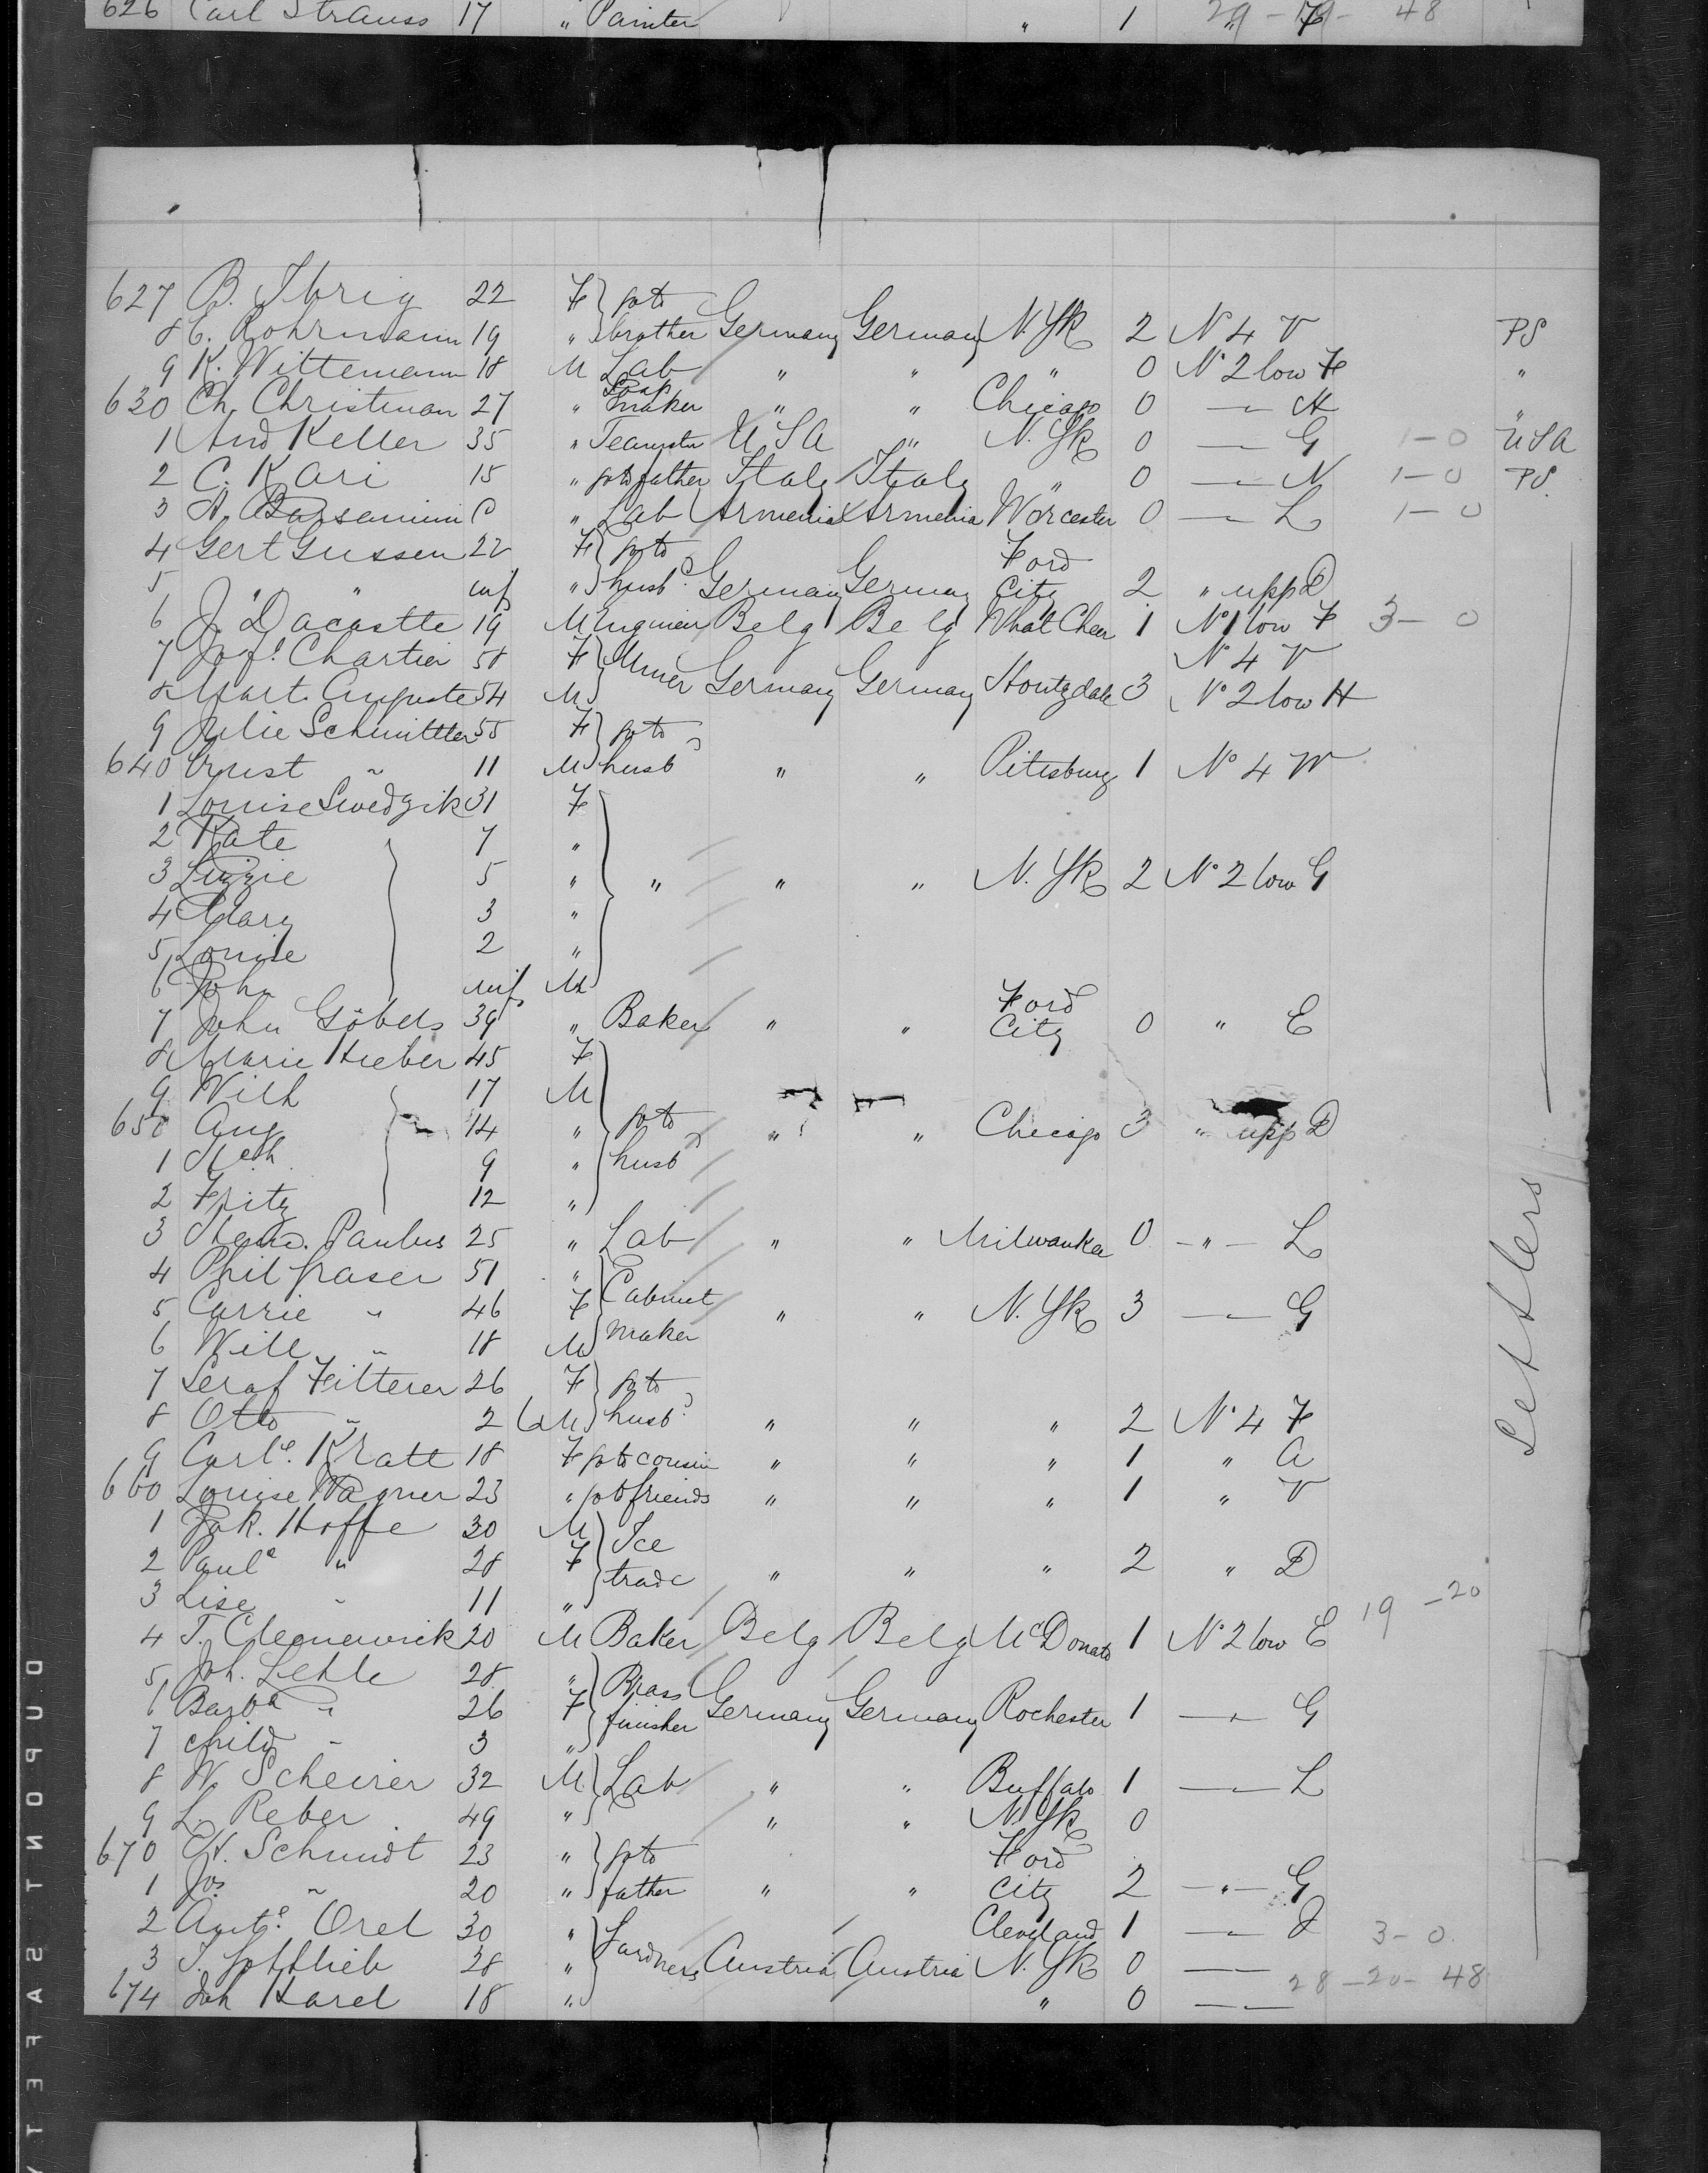 626 Carl Strauss 17 " Painter " 1 " F 29 - 19 - 48
627 B. Ibrig 22 F go to
8 C. Rohrmann 19 " brother Germany Germany N. Yk 2 No 4 V PS
9 K. Wittemann 18 M Lab " " " 0 No 2 low F "
630 Ch. Christman 27 " Soap maker " " Chicago 0 — " — H "
1 And Keller 35 " Teamster U S A " N. Yk 0 — " — G 1 - 0 U S A
2 C. Kari 15 " go to father Italy Italy " 0 — " — N 1 - 0 PS.
3 A. Barsamium C " Lab Armenia Armenia Worcester 0 — " — L 1 - 0
4 Gert Gussen 22 F go to Ford
5 " " inf " husbd. Germany Germany City 2 " upp D
6 J. Dacostte 19 M Engineer Belg Belg What Cheer 1 No 1 low F 3 - 0
7 Josf. Chartier 58 F Miner No 4 V
8 Mart. Auguste 54 M Germany Germany Houtzdale 3 No 2 low H
9 Julie Schmittler 55 F go to
640 Ernst " 11 M husbd " " Pittsburg 1 No 4 W
1 Louise Swedzik 31 F
2 Kate 7 "
3 Lizzie 5 " " " " N. Yk 2 No 2 low G
4 Mary 3 "
5 Louise 2 "
6 John inf M
7 John Göbels 39 " Baker " " Ford City 0 " E
8 Marie Hieber 45 F
9 Wilh 17 M
650 Aug 14 " go to " " Chicago 3 " upp D
1 9 " husbd
2 Fritz 12 "
3 Paulus 25 " Lab " " Milwaukee 0 — " — L
4 Phil Graser 51 " Cabinet
5 Carrie " 46 F " " N. Yk 3 — " — G
6 Will " 18 M maker
7 Seraf Fitterer 26 F go to
8 Otto " 2 M husbd. " " " 2 No 4 F
9 Carle. Kratt 18 F go to cousin " " " 1 " A
660 Louise Wagner 23 " go to friends " " " 1 " V
1 Jak. Hoffe 30 M Ice
2 Paule " 28 F trade " " " 2 " D
3 Lise " 11 "
4 T. Clegnewick 20 M Baker Belg Belg McDonald 1 No 2 low E 19 - 20
5 Joh. Lehle 28 " Brass
6 Barba " 26 F finisher Germany Germany Rochester 1 — " — G
7 child " 3 "
8 W. Scheirer 32 M Lab " " Buffalo 1 — " — L
9 L. Reber 49 " " " N. Yk 0
670 H. Schmidt 23 " go to Ford
1 Jos " 20 " father " " City 2 — " — G
2 Ante. Orel 30 " Cleveland 1 — " — J 3 - 0.
3 J. Gottlieb 28 " Gardners Austria Austria N. Yk 0 — " —
674 Joh Harel 18 " " 0 — " — 28 - 20 - 48
Settlers
DUPONT SAFETY